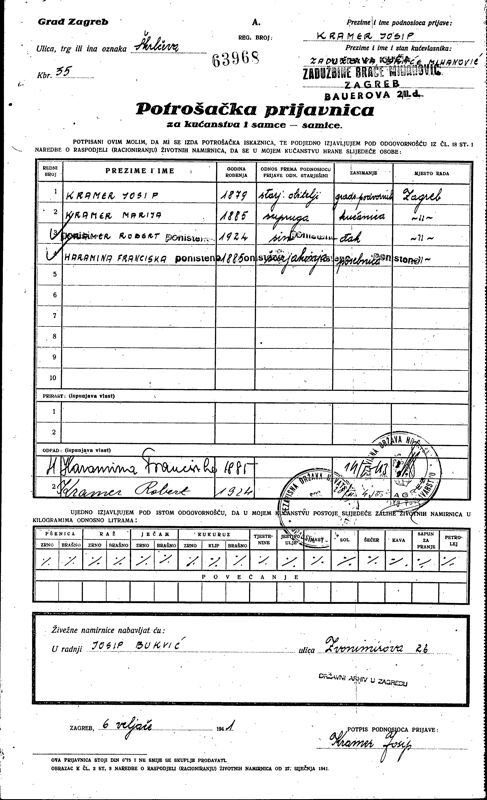 Grad Zagreb
A.
Prezime i ime podnosioca prijave:
KRAMER JOSIP
Ulica, trg ili ina oznaka
REG. BROJ:
63968
Prezime i ime i stan kućevlasnika:
ZADUŽBINE BRAĆE MIHANOVIĆ
ZAGREB
BAUEROVA 2/II.d.
Kbr. 35
Potrošačka prijavnica
za kućanstva i samce — samice.
POTPISANI OVIM MOLIM, DA MI SE IZDA POTROŠAČKA ISKAZNICA, TE PODJEDNO IZJAVLJUJEM POD ODGOVORNOŠĆU IZ ČL. 18 ST. 1
NAREDBE O RASPODJELI (RACIONIRANJU) ŽIVOTNIH NAMIRNICA, DA SE U MOJEM KUĆANSTVU HRANE SLIJEDEĆE OSOBE:
REDNI BROJ PREZIME I IME GODINA ROĐENJA ODNOS PREMA PODNOSIOCU PRIJAVE ODN. STARJEŠINI ZANIMANJE MJESTO RADA
1 KRAMER JOSIP 1879 starj. obitelji Zagreb
2 KRAMER MARIJA 1885 supruga kućanica -"-
3 KRAMER ROBERT poništeno 1924 sin đak -"-
4 HARAMINA FRANCISKA poništena 1885 -"-
5
6
7
8
9
10
PRIRAST: (ispunjava vlast)
1
2
OTPAD: (ispunjava vlast)
Haramina Franciska 1885
2 Kramer Robert 1924
NEZAVISNA DRŽAVA
UJEDNO IZJAVLJUJEM POD ISTOM ODGOVORNOŠĆU, DA U MOJEM KUĆANSTVU POSTOJE SLIJEDEĆE ZALIHE ŽIVOTNIH NAMIRNICA U
KILOGRAMIMA ODNOSNO LITRAMA:
PŠENICA RAŽ JEČAM KUKURUZ TJESTENINE JESTIVO ULJE MAST SOL ŠEĆER KAVA SAPUN ZA PRANJE PETROLEJ
ZRNO BRAŠNO ZRNO BRAŠNO ZRNO BRAŠNO ZRNO KLIP BRAŠNO
·/· ·/· ·/· ·/· ·/· ·/· ·/· ·/· ·/· ·/· ·/· ·/· ·/· ·/· ·/· ·/· ·/·
POVEĆANJE
Živežne namirnice nabavljat ću:
U radnji JOSIP BUKVIĆ ulica Zvonimirova 26
DRŽAVNI ARHIV U ZAGREBU
ZAGREB, 6 veljače 1941
POTPIS PODNOSIOCA PRIJAVE:
Kramer Josip
OVA PRIJAVNICA STOJI DIN 0'75 I NE SMIJE SE SKUPLJE PRODAVATI.
OBRAZAC K ČL. 2 ST. 3 NAREDBE O RASPODJELI (RACIONIRANJU) ŽIVOTNIH NAMIRNICA OD 27. SIJEČNJA 1941.